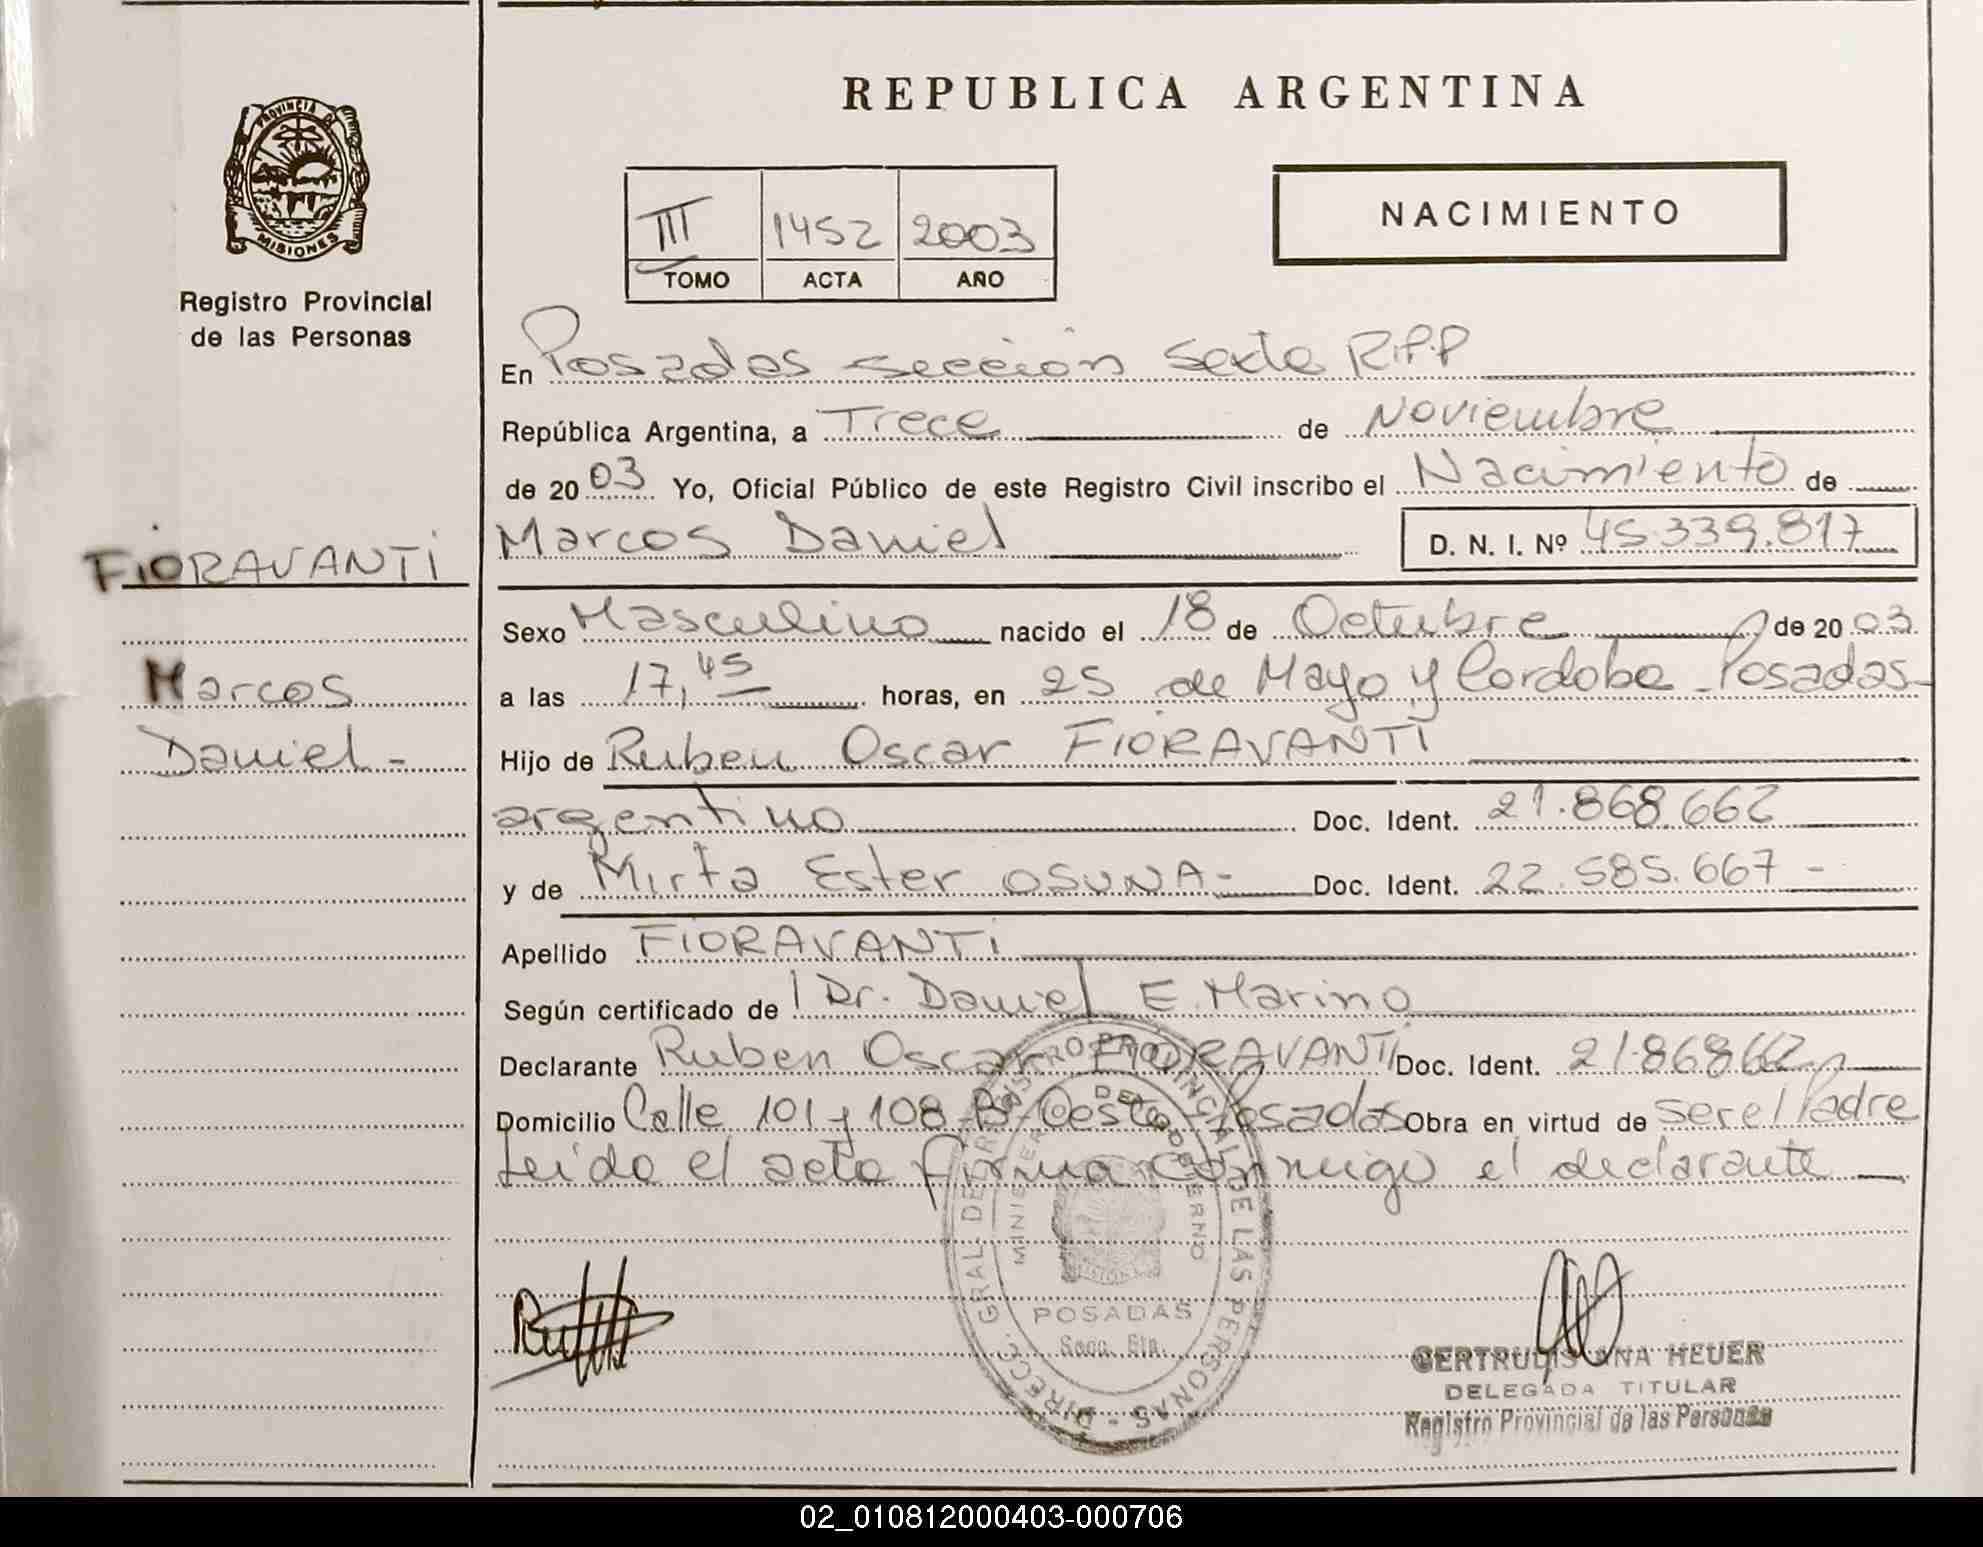 REPUBLICA ARGENTINA
PROVINCIA DE
MISIONES
Registro Provincial
de las Personas
III 1452 2003
TOMO ACTA AÑO
NACIMIENTO
En Posadas sección Sexta R.P.P
República Argentina, a Trece de Noviembre
de 2003 Yo, Oficial Público de este Registro Civil inscribo el Nacimiento de
FIORAVANTI
Marcos Daniel D. N. I. Nº 45.339.817
Sexo Masculino nacido el 18 de Octubre de 2003
Marcos
a las 17,45 horas, en 25 de Mayo y Cordoba - Posadas -
Daniel -
Hijo de Ruben Oscar FIORAVANTI
argentino Doc. Ident. 21.868.662
y de Mirta Ester OSUNA - Doc. Ident. 22.585.667 -
Apellido FIORAVANTI
Según certificado de Dr. Daniel E. Marino
Declarante Ruben Oscar FIORAVANTI Doc. Ident. 21.868.662
Domicilio Calle 101 y 108 Bº Oeste Posadas Obra en virtud de ser el Padre
Leido el acta firma conmigo el declarante
DIRECC. GRAL. DEL REGISTRO PROVINCIAL DE LAS PERSONAS -
MINISTERIO DE GOBIERNO
POSADAS
Secc. 6ta.
GERTRUDIS ANA HEUER
DELEGADA TITULAR
Registro Provincial de las Personas
02_010812000403-000706